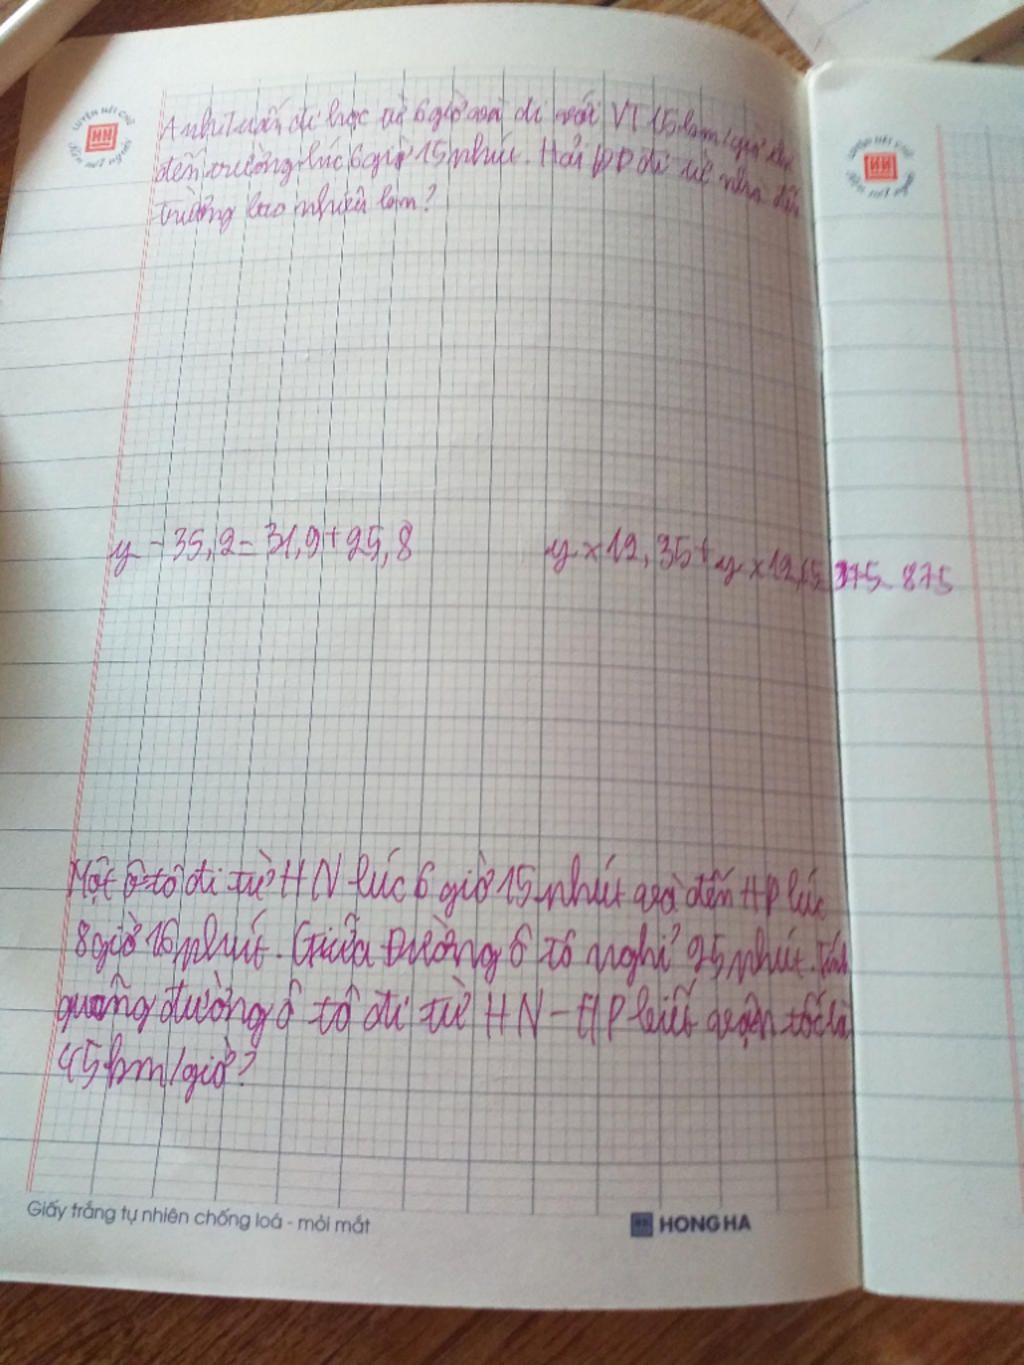 LUYỆN NÉT CHỮ
Rèn nết người
Anh Tuấn đi học từ 6 giờ và đi với VT 15 km/giờ
đến trường lúc 6 giờ 15 phút. Hỏi đi từ nhà đến
trường bao nhiêu km?
y - 35,2 = 31,9 + 25,8
y × 12,35 + y × 875
Một ô tô đi từ HN lúc 6 giờ 15 phút và đến HP lúc
8 giờ 16 phút. Giữa Đường ô tô nghỉ 25 phút. Tính
quãng đường ô tô đi từ HN - HP biết vận tốc là
45 km/giờ?
Giấy trắng tự nhiên chống loá - mỏi mắt
HONG HA